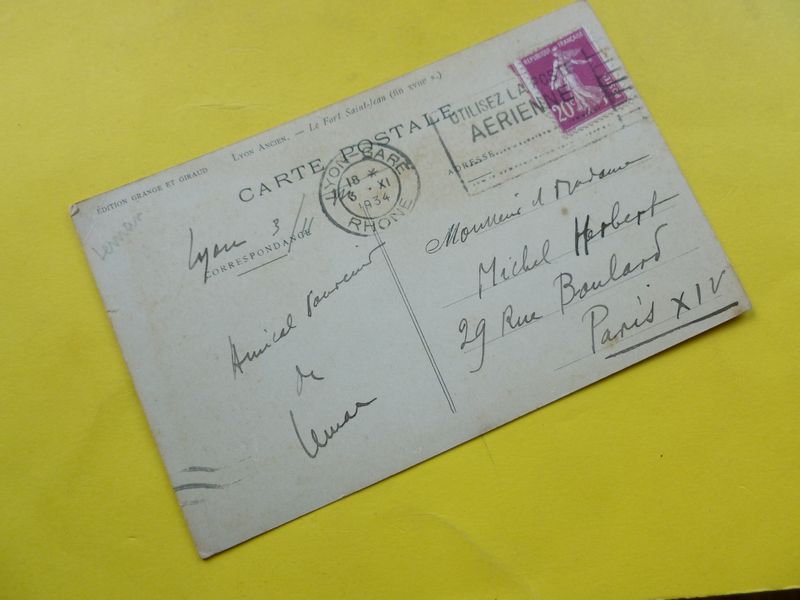 ÉDITION GRANGE ET GIRAUD
LYON ANCIEN. — Le Fort Saint-Jean (fin XVIIIe s.)
CARTE POSTALE
CORRESPONDANCE
ADRESSE
LYON-GARE
18 *
3 · XI
1934
RHONE
UTILISEZ LA POSTE
AERIENNE
REPUBLIQUE FRANÇAISE
20c
Lyon 3/11
Amical souvenir
de
Monsieur et Madame
Michel Herbert
29 Rue Boulard
Paris XIV